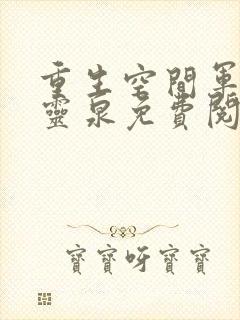 重生空間軍
靈泉免費閱
寶寶呀寶寶